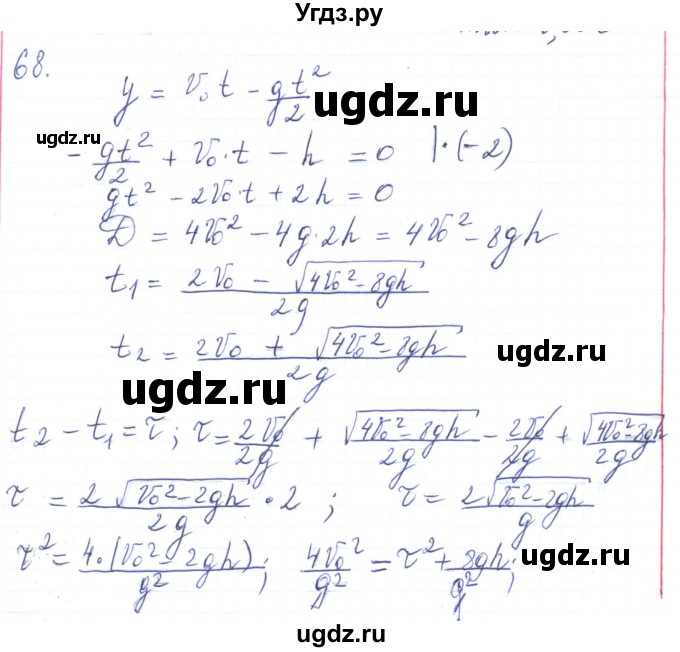 Угдз.ру
68.
y = v₀t - gt²/2
ugdz.ru
ugdz.ru
- gt²/2 + v₀·t - h = 0 |·(-2)
gt² - 2v₀·t + 2h = 0
D = 4v₀² - 4g·2h = 4v₀² - 8gh
t₁ = (2v₀ - √(4v₀² - 8gh))/2g
ugdz.ru
t₂ = (2v₀ + √(4v₀² - 8gh))/2g
ugdz.ru
ugdz.ru
t₂ - t₁ = τ; τ = 2v₀/2g + √(4v₀² - 8gh)/2g - 2v₀/2g + √(4v₀² - 8gh)/2g
ugdz.ru
τ = 2√(v₀² - 2gh)/2g · 2; τ = 2√(v₀² - 2gh)/g
τ² = 4·(v₀² - 2gh)/g²; 4v₀²/g² = τ² + 8gh/g²;
ugdz.ru
ugdz.ru
ugdz.ru